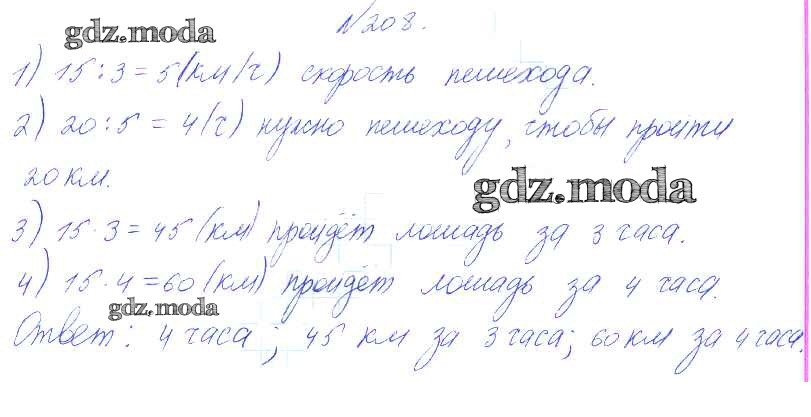 №208.
gdz.moda
1) 15:3=5(км/ч) скорость пешехода.
2) 20:5=4(ч) нужно пешеходу, чтобы пройти
20 км.
gdz.moda
3) 15·3=45(км) пройдёт лошадь за 3 часа.
4) 15·4=60(км) пройдёт лошадь за 4 часа.
gdz.moda
Ответ: 4 часа; 45 км за 3 часа; 60 км за 4 часа.